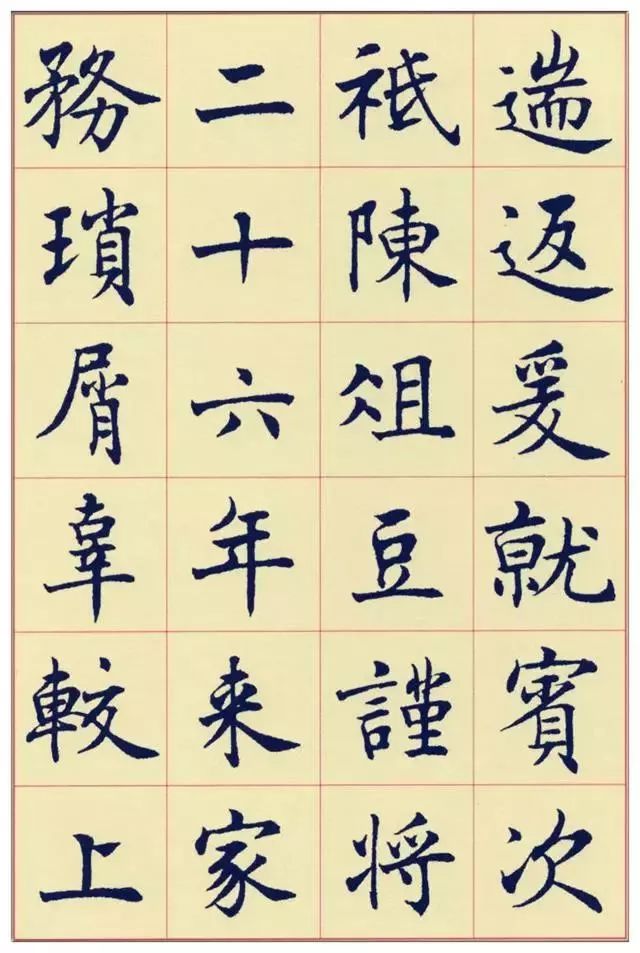 遄返爰就賓次
祗陳俎豆謹將
二十六年来家
務瑣屑辜較上